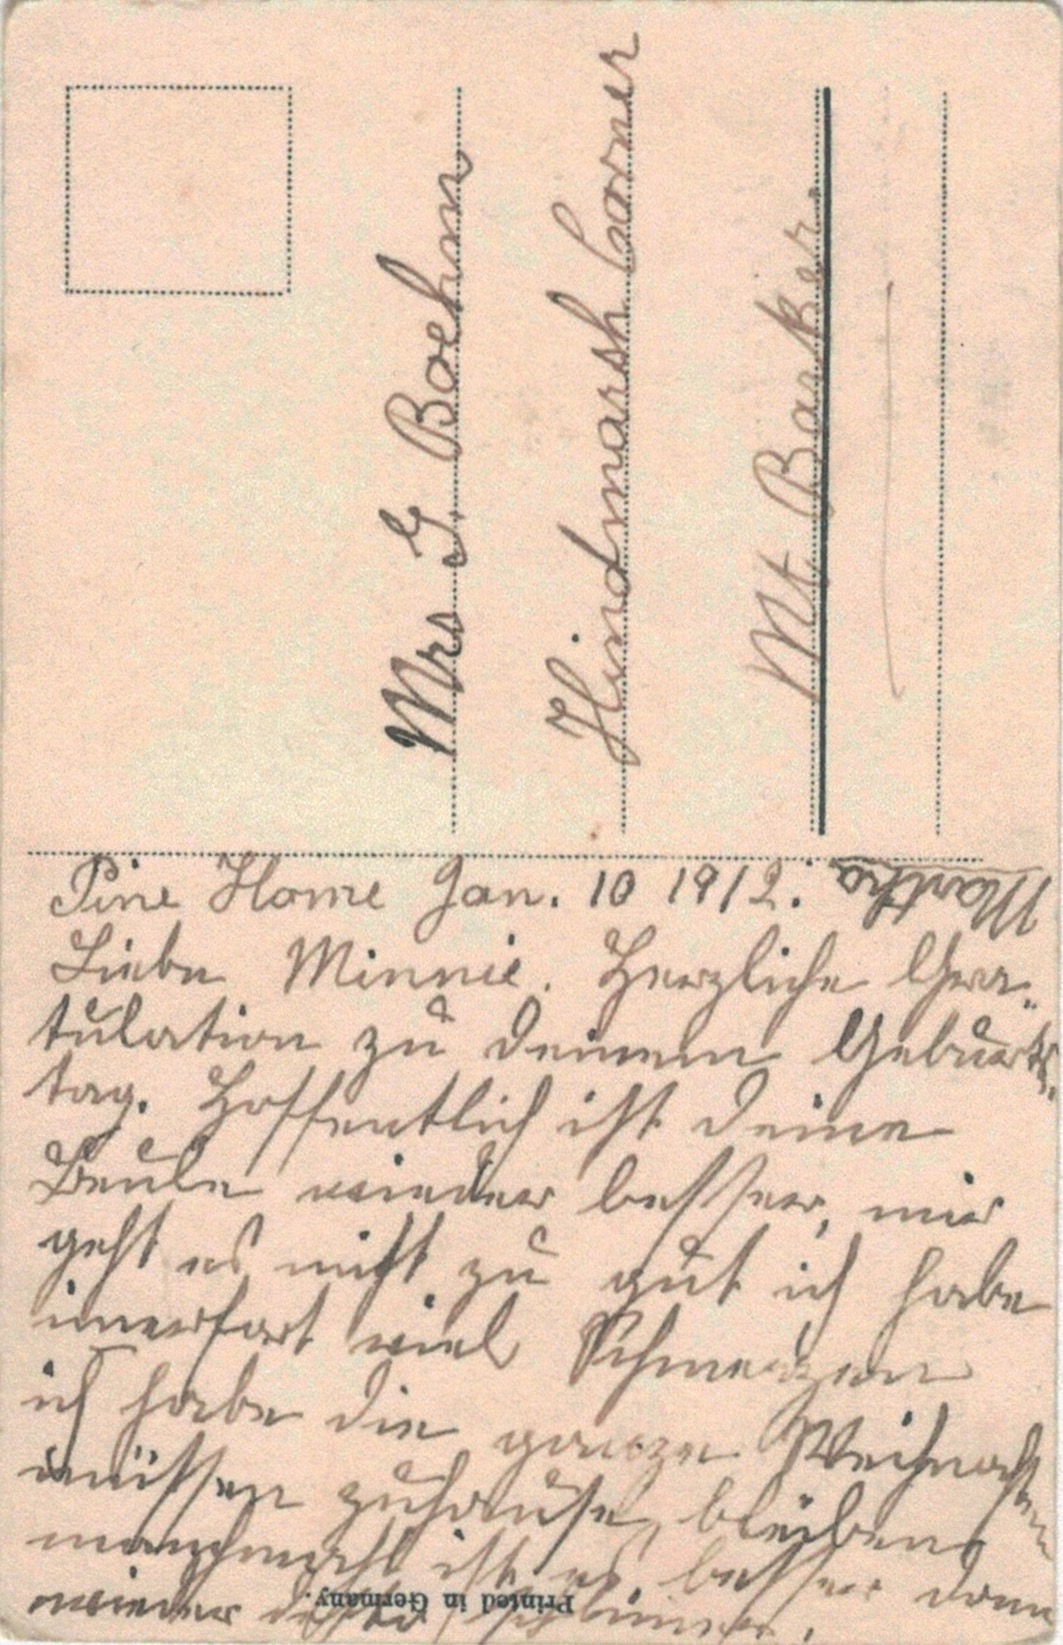 Mrs G. Boehm
Hindmarsh Corner
Mt Barker.
Pine Home Jan. 10 1912.
Liebe Minnie. Herzliche Gra-
tulation zu deinem Geburts-
tag. Hoffentlich ist deine
Beule wieder besser, mir
geht es nicht zu gut ich habe
imerfort viel Schmerzen
ich habe die ganze Weihnachten
müssen zuhause bleiben,
manchmahl ist es besser dann
wieder desto schlimmer.
Martha
Printed in Germany.